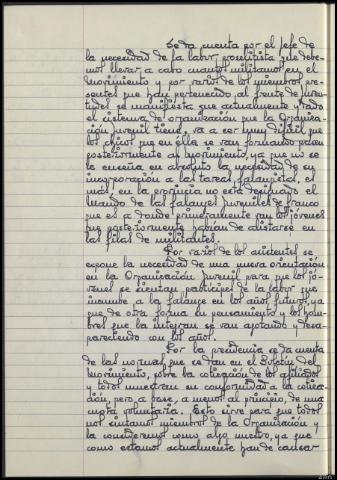 Se da cuenta por el Jefe de
la necesidad de la labor proselitista que debe-
mos llevar a cabo cuantos militamos en el
Movimiento y por varios de los miembros pre-
sentes que han pertenecido al frente de Juven-
tudes se manifiesta que actualmente y dado
el sistema de organización que la Organiza-
ción Juvenil tiene, va a ser muy dificil que
los chicos que en ella se van formando pasen
posteriormente al Movimiento, ya que no se
la enseña en absoluto la necesidad de su
incorporación a las tareas falangistas, es
más, en la provincia no está designado el
Mando de las falanges Juveniles de franco
que es a donde primeramente van los jóvenes
que posteriormente habian de alistarse en
las filas de militantes.
Por varios de los asistentes se
expone la necesidad de una nueva orientación
en la Organización Juvenil para que los jó-
venes se sientan participes de la labor que
incumbe a la falange en los años futuros, ya
que de otra forma su pensamiento y los hom-
bres que la integran se van agotando y desa-
pareciendo con los años.
Por la presidencia se da cuenta
de las normas que se dan en el Boletin del
Movimiento, sobre la cotización de los afiliados
y todos muestran su conformidad a la cotiza-
ción, pero a base, a menos al principio, de una
cuota voluntaria. Esto sirve para que todos
nos sintamos miembros de la Organización y
la consideremos como algo nuestro, ya que
como estamos actualmente han de causar